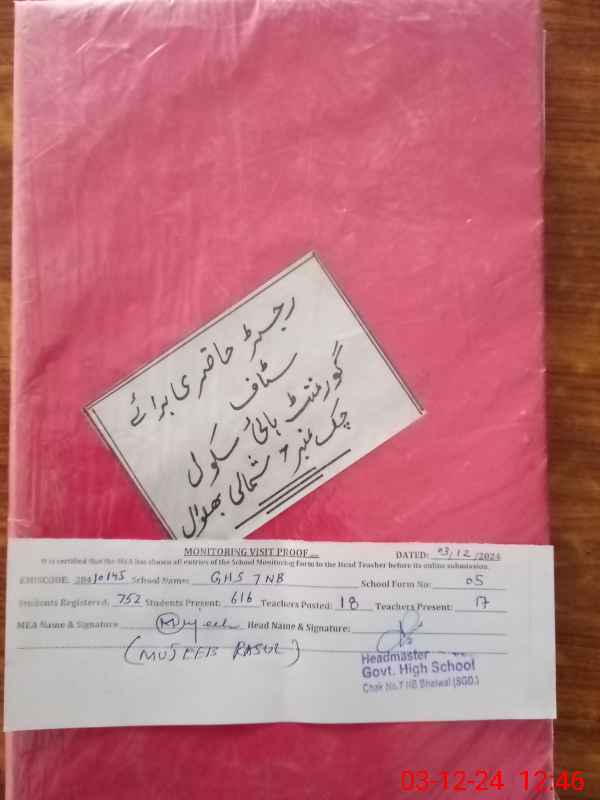 رجسٹر حاضری برائے
سٹاف
گورنمنٹ ہائی سکول
چک نمبر 7 شمالی بھلوال
MONITORING VISIT PROOF
DATED: 03/12/2024
It is certified that the MEA has shown all entries of the School Monitoring Form to the Head Teacher before its online submission.
EMISCODE: 28410145 School Name: GHS 7 NB School Form No: 05
Students Registered: 752 Students Present: 616 Teachers Posted: 18 Teachers Present: 17
MEA Name & Signature Mujeeb Head Name & Signature:
(MUJEEB RASUL)
Headmaster
Govt. High School
Chak No.7 NB Bhalwal (SGD.)
03-12-24 12:46